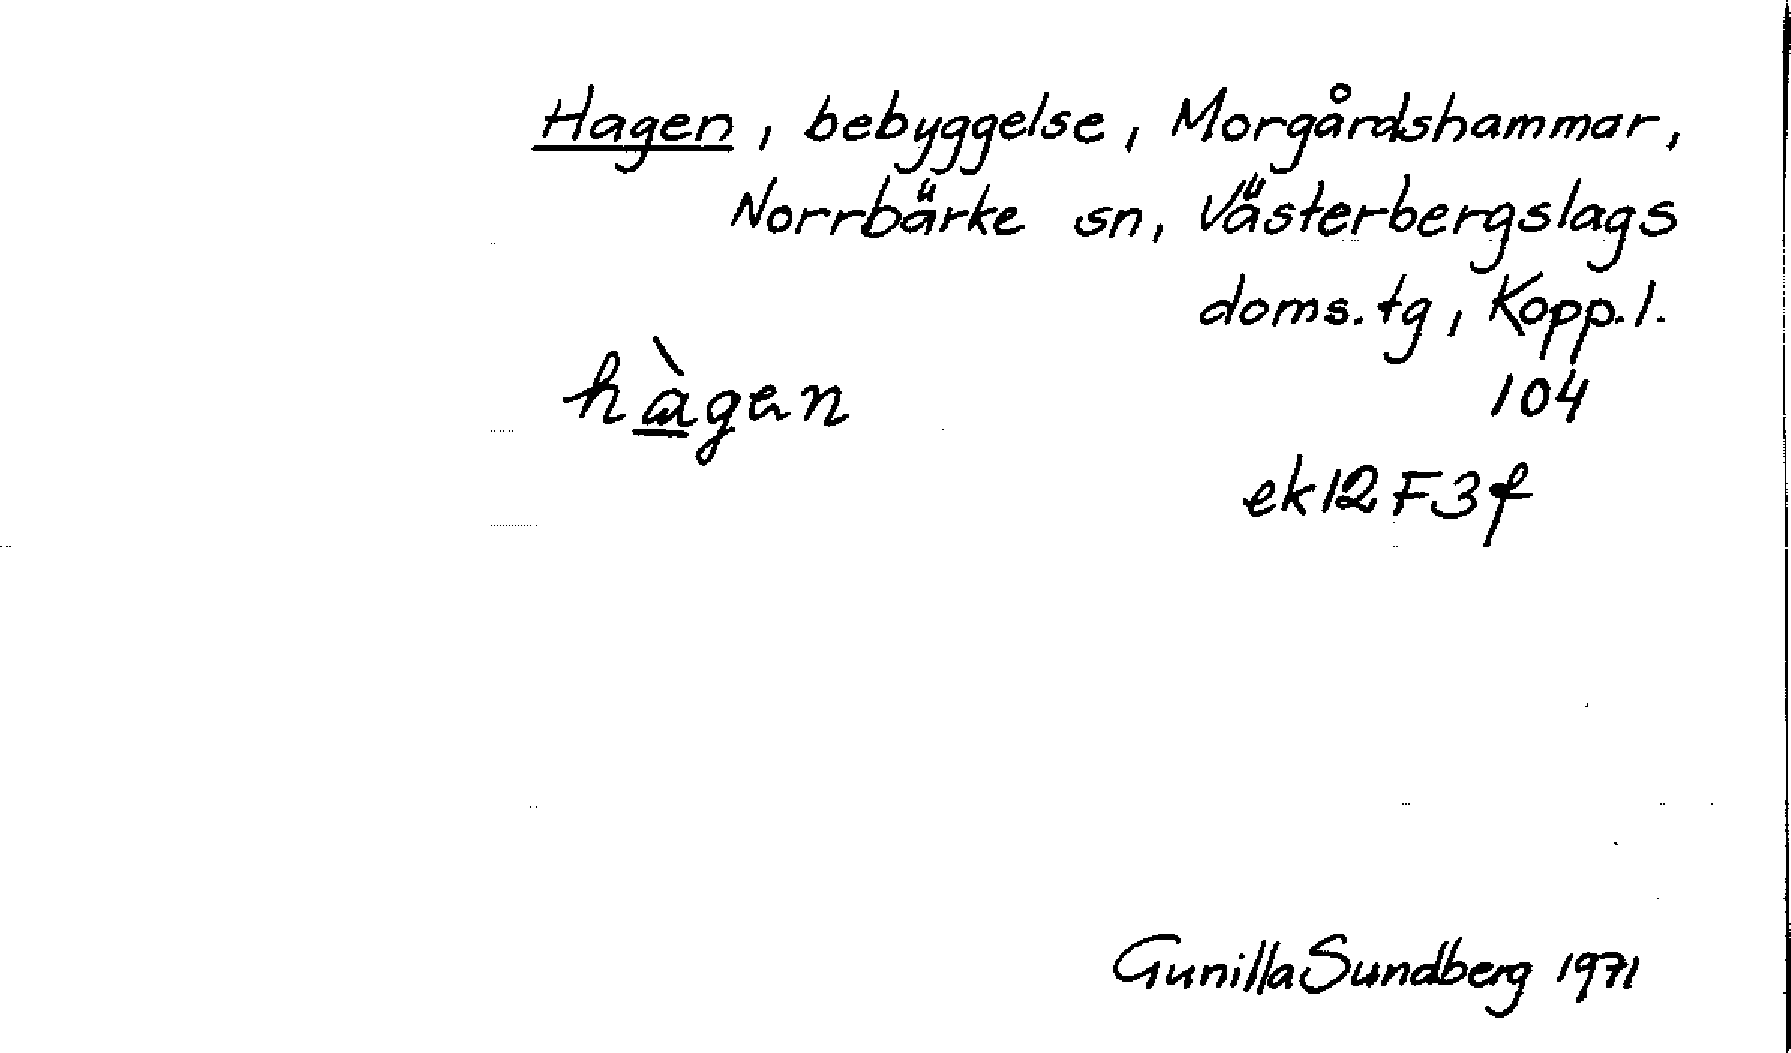 Hagen, bebyggelse, Morgårdshammar,
Norrbärke sn, Västerbergslags
doms.tg, Kopp.l.
hàgen 104
ek12F3f
Gunilla Sundberg 1971